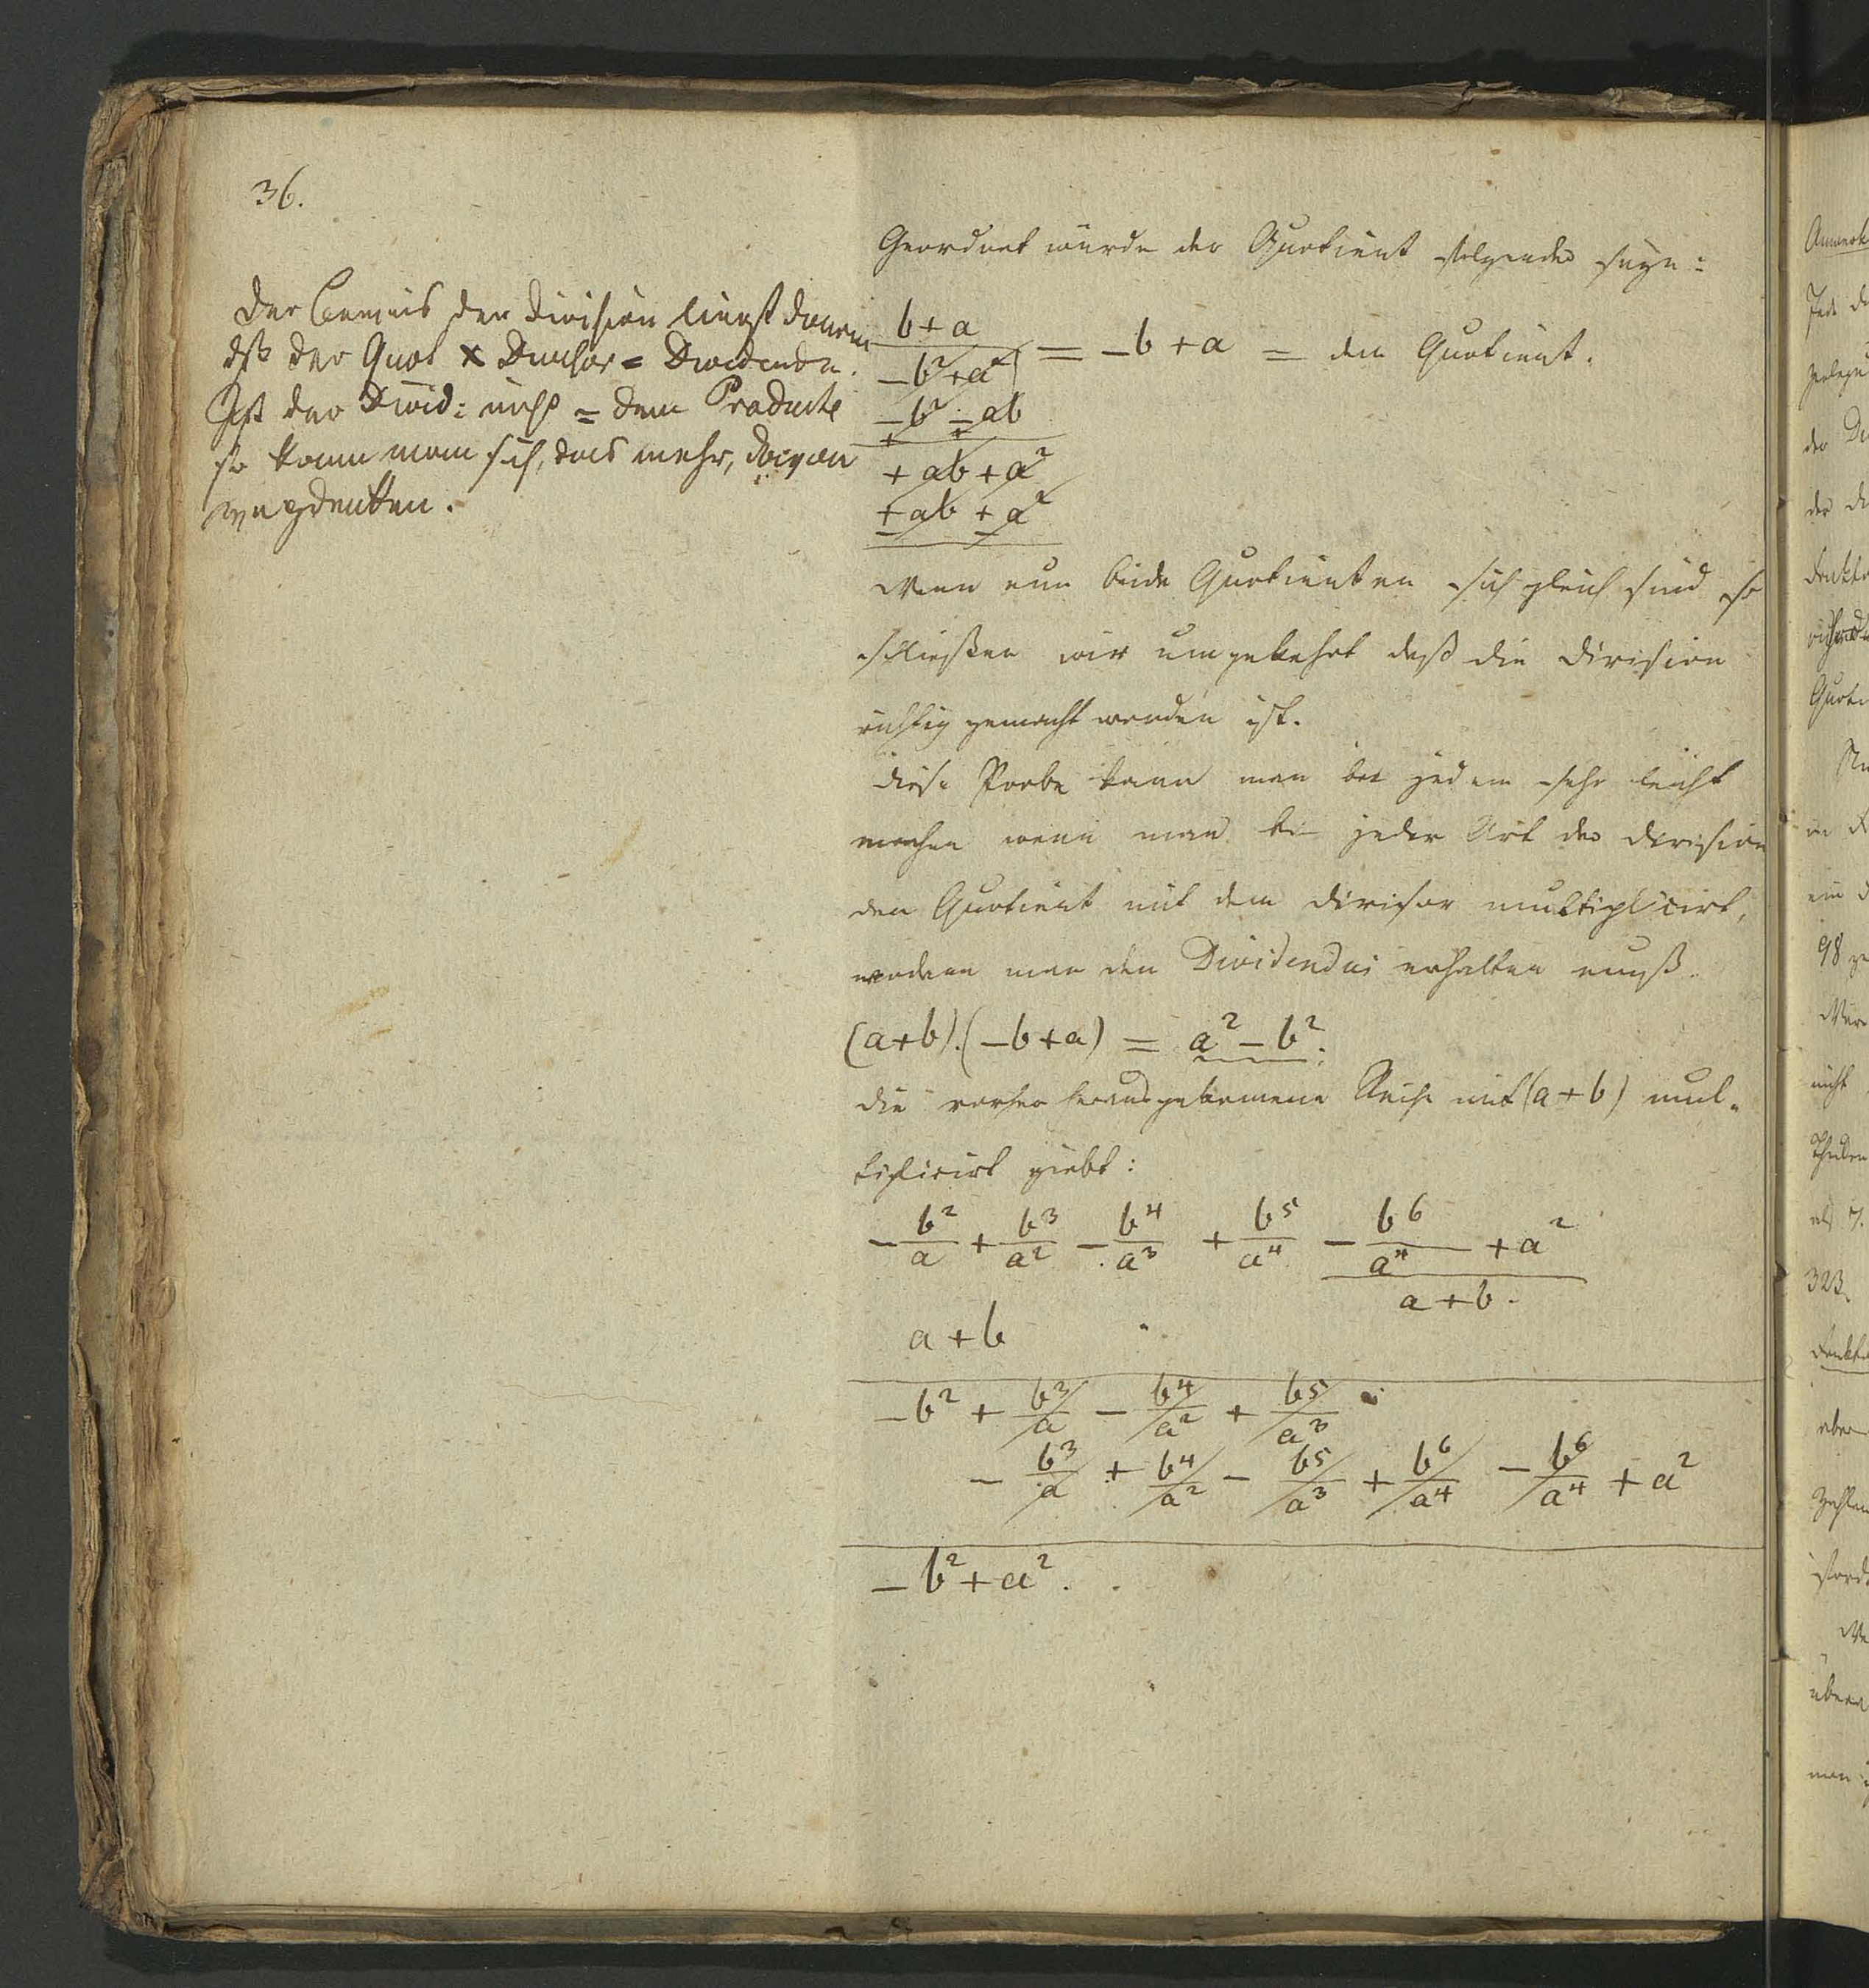 36.
Der Beweis der Division liegt darin
dß der Quot × Divisor = Dividende.
Ist der Divid: nicht = dem Producte
so kann man sich, das mehr,
wegdenken.
Geordnet würde der Quotient folgender seyn:
b+a
-b²+a² = -b+a = dem Quotient.
-b² - ab
+ +
+ ab + a²
+ ab + a²
- -
Wenn nun beide Quotienten sich gleich sind so
schließen wir umgekehrt daß die Division
richtig gemacht worden ist.
Diese Probe kann man bei jedem sehr leicht
machen wenn man bei jeder Art der Division
den Quotient mit dem Divisor multiplicirt,
wodann man den Dividendus erhalten muß.
(a+b).(-b+a) = a² - b².
Die vorher herausgekomene Reihe mit (a+b) mul-
tiplicirt giebt:
- b²/a + b³/a² - b⁴/a³ + b⁵/a⁴ - b⁶/a⁴ + a²
a+b.
a+b
-b² + b³/a - b⁴/a² + b⁵/a³
- b³/a + b⁴/a² - b⁵/a³ + b⁶/a⁴ - b⁶/a⁴ + a²
-b²+a².
98
323.